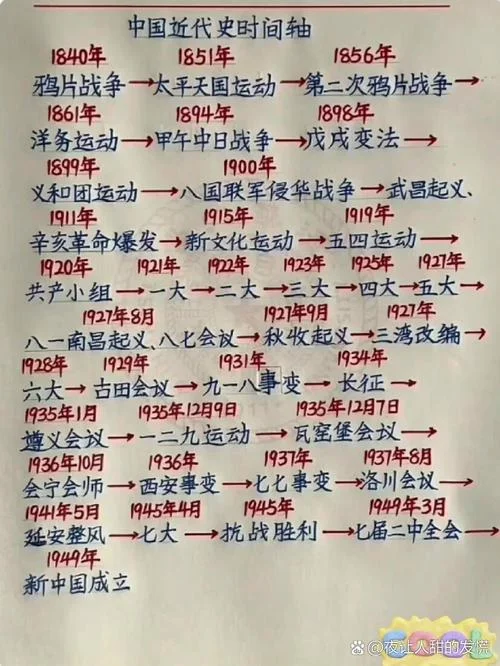 中国近代史时间轴
1840年 1851年 1856年
鸦片战争→太平天国运动→第二次鸦片战争→
1861年 1894年 1898年
洋务运动→甲午中日战争→戊戌变法→
1899年 1900年
义和团运动→八国联军侵华战争→武昌起义、
1911年 1915年 1919年
辛亥革命爆发→新文化运动→五四运动→
1920年 1921年 1922年 1923年 1925年 1927年
共产小组→一大→二大→三大→四大→五大→
1927年8月 1927年9月 1927年
八一南昌起义、八七会议→秋收起义→三湾改编→
1928年 1929年 1931年 1934年
六大→古田会议→九一八事变→长征→
1935年1月 1935年12月9日 1935年12月7日
遵义会议→一二九运动→瓦窑堡会议→
1936年10月 1936年 1937年 1937年8月
会宁会师→西安事变→七七事变→洛川会议→
1941年5月 1945年4月 1945年 1949年3月
延安整风→七大→抗战胜利→七届二中全会→
1949年
新中国成立
@夜让人甜的发慌